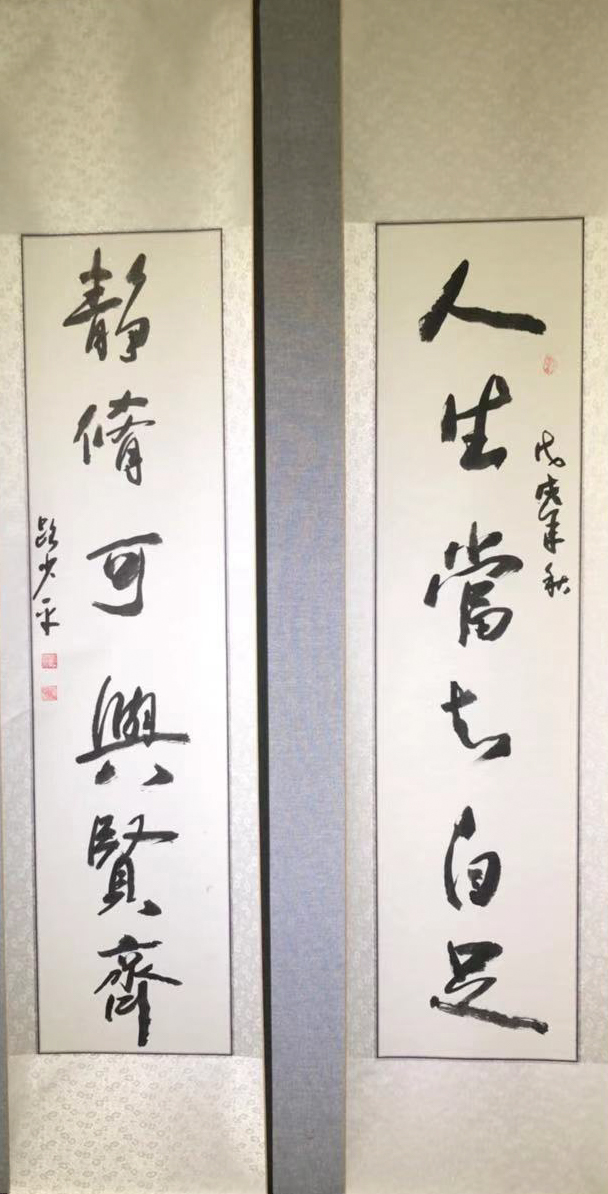 人生當知自足
戊戌年秋
靜脩可與賢齊
少平